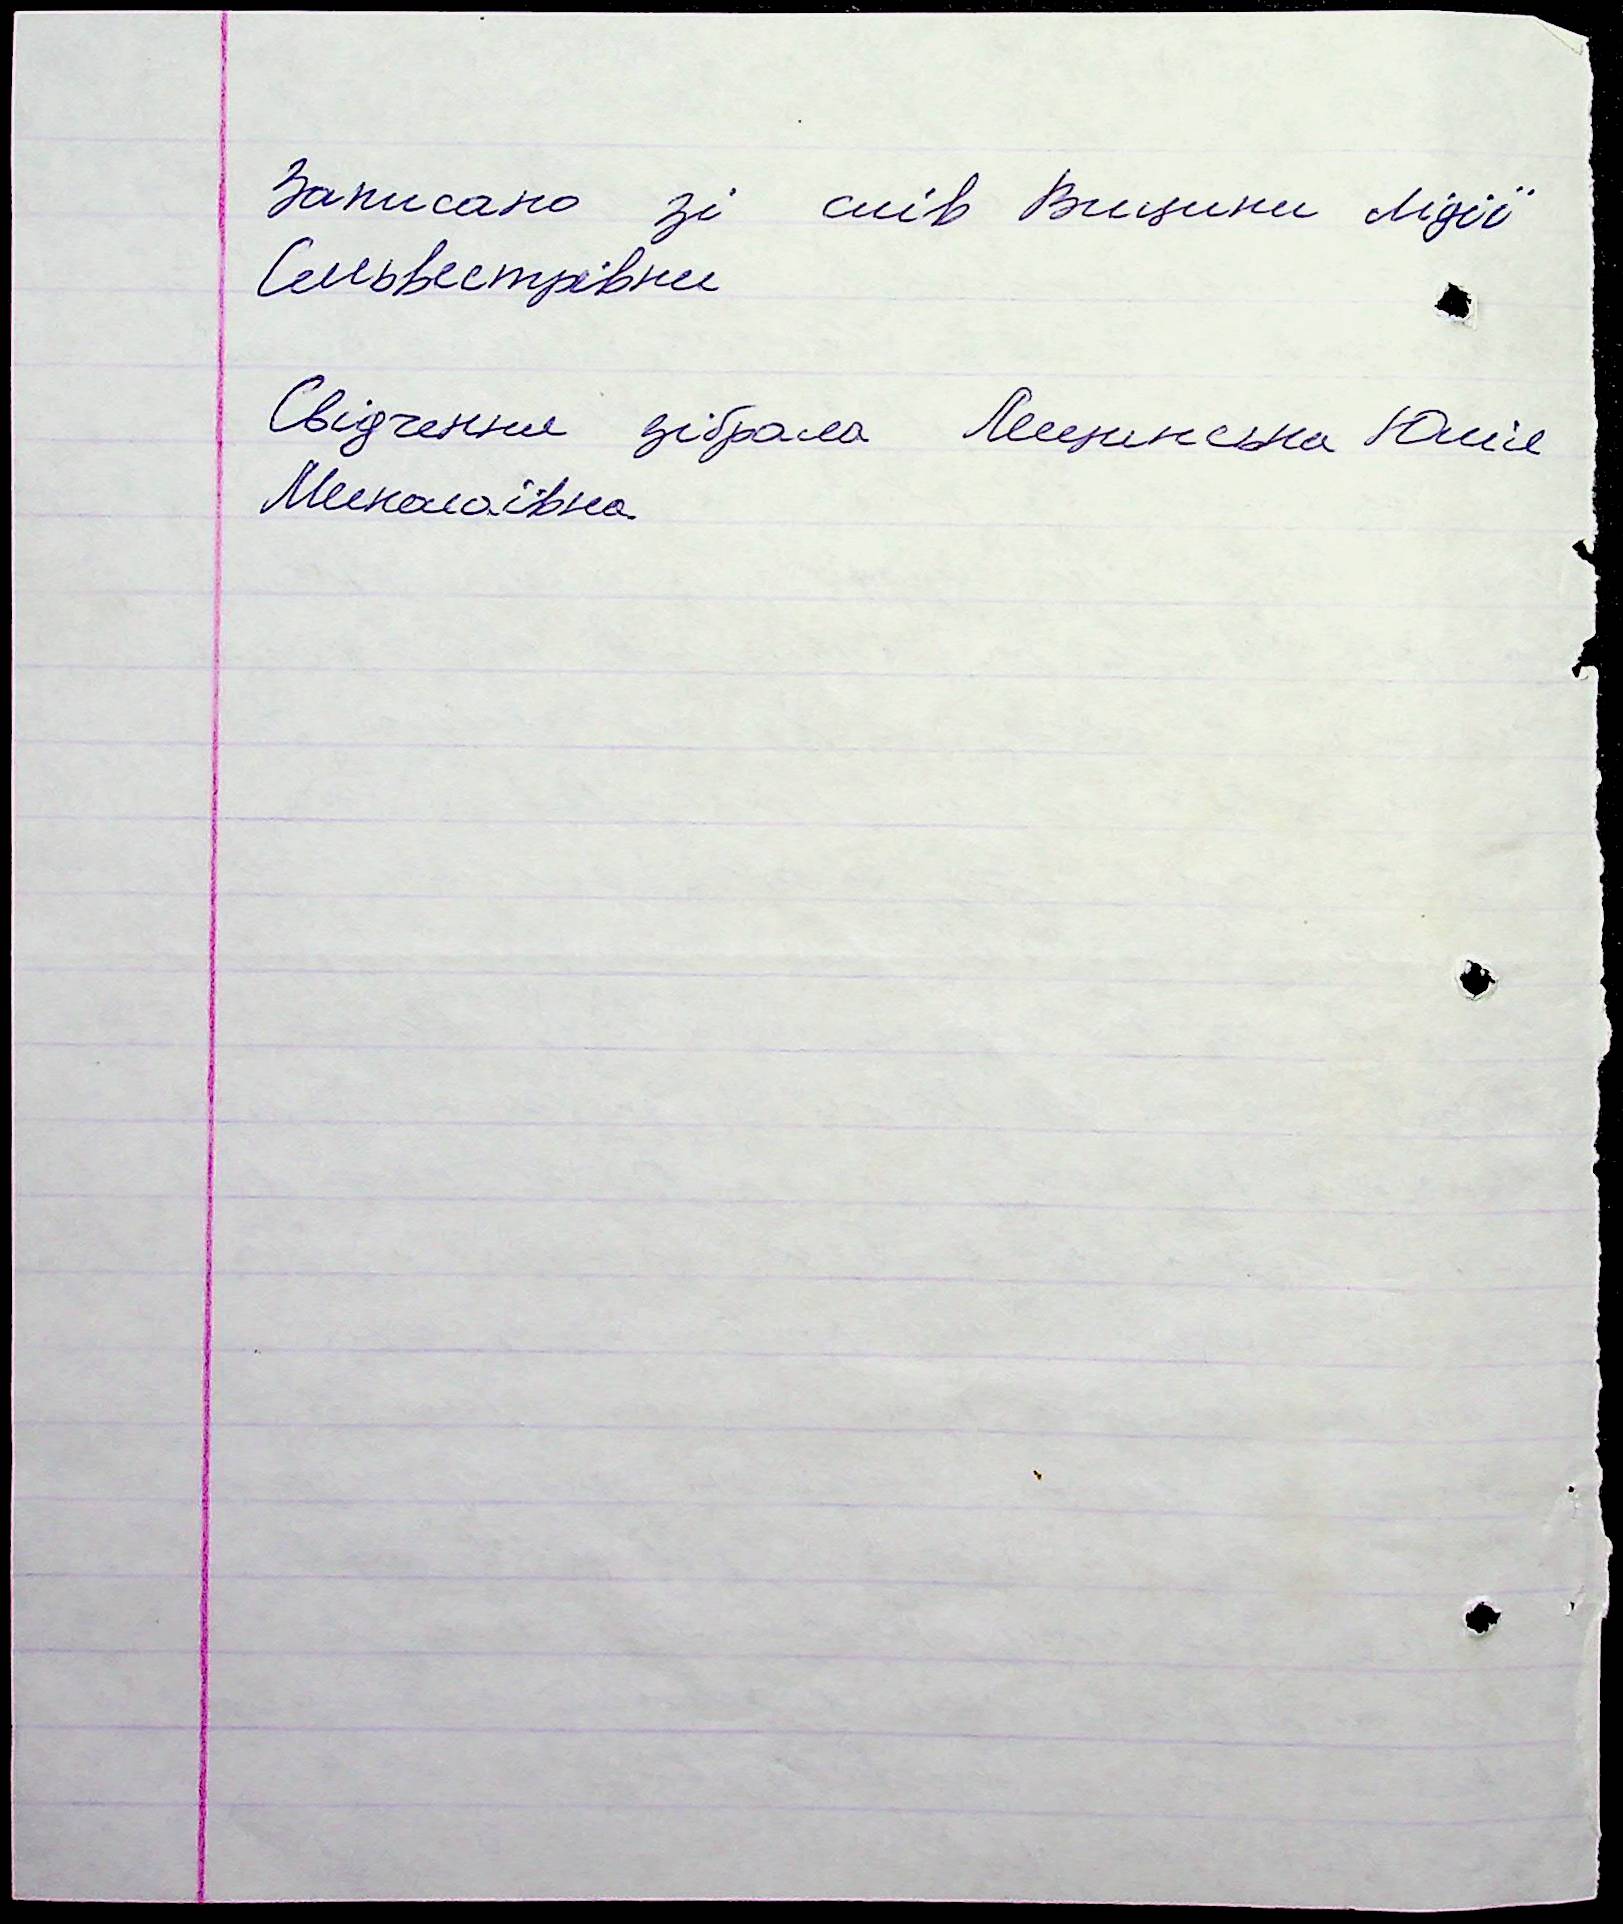 Записано зі слів Вицини Лідії
Сильвестрівни
Свідчення зібрала Лещинська Юлія
Миколаївна